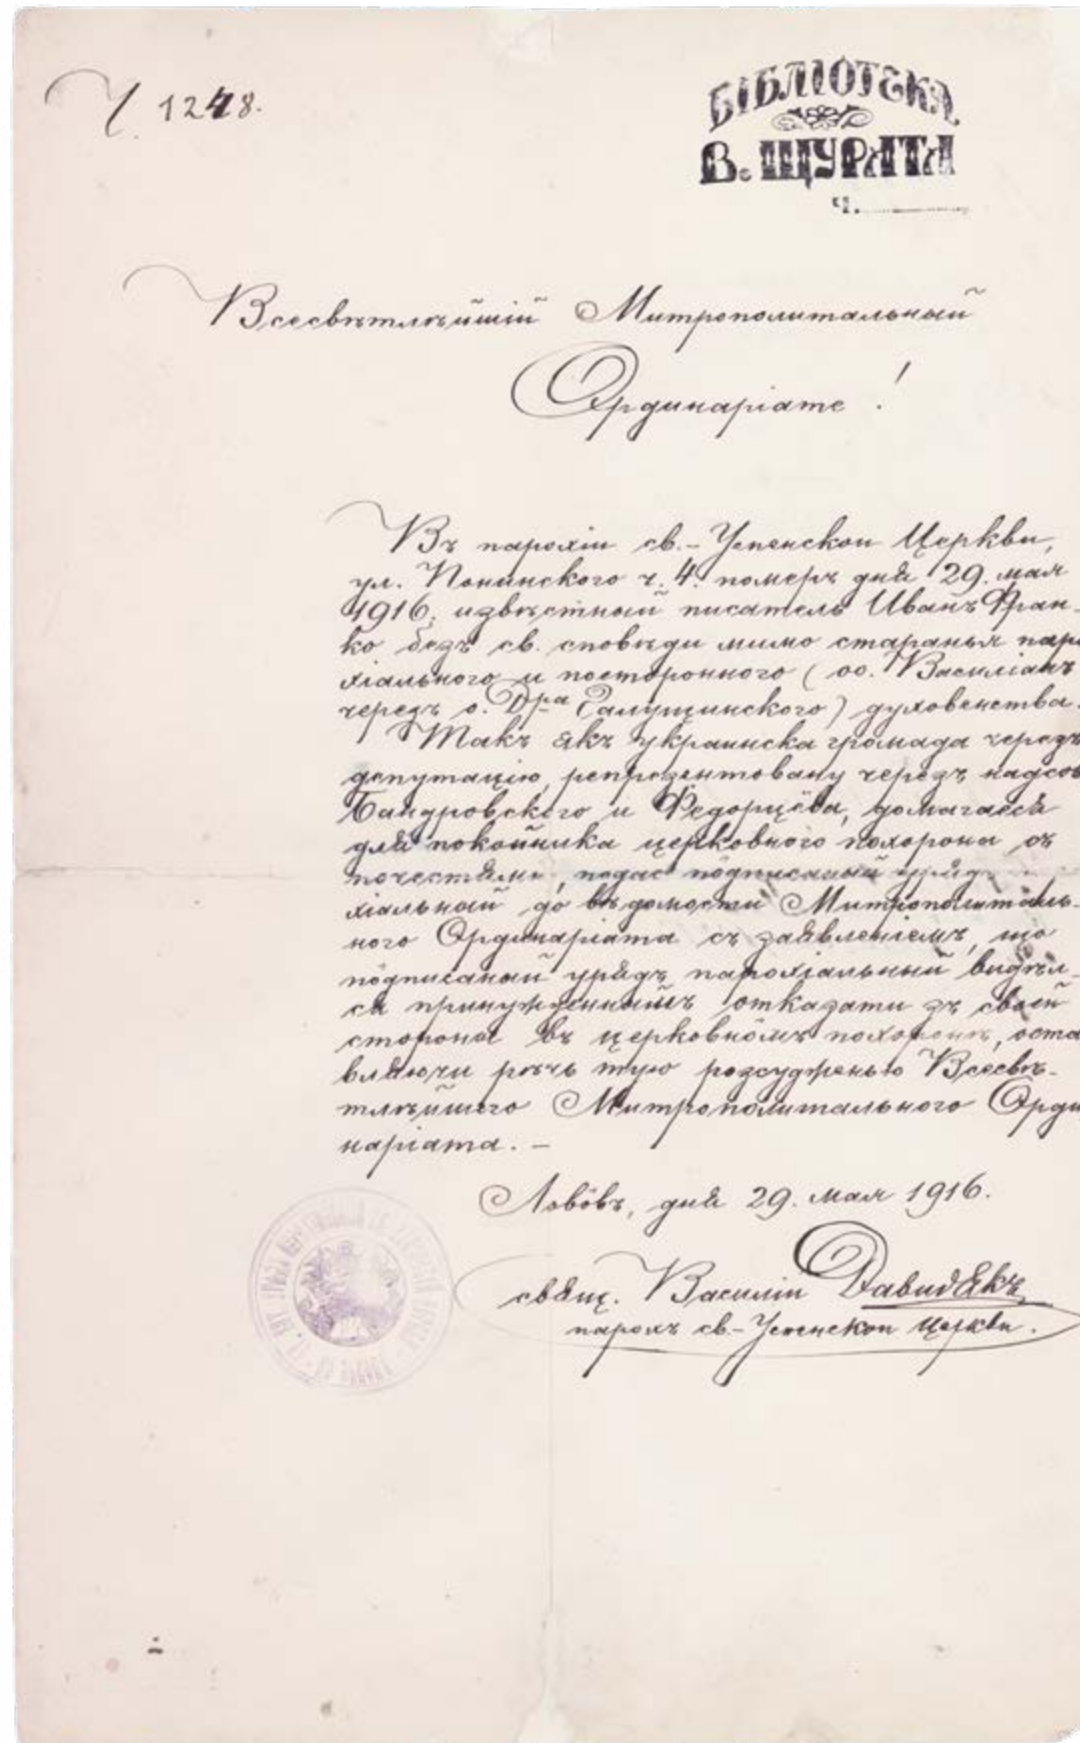 Ч. 1248.
БІБЛІОТЕКА
В. ЩУРАТА
Ч.
Всесвѣтлѣйшій Митрополитальный
Ординаріате!
Въ парохіи св.-Успенскои Церкви,
ул. Понинского ч. 4. померъ дня 29. мая
1916. извѣстный писатель Иванъ Фран-
ко безъ св. сповѣди мимо стараныя паро
хіального и постороннего (оо. Василіанъ
черезъ о. Дра Галущинского) духовенства.
Такъ якъ украинска громада черезъ
депутацію, репрезентовану черезъ надсов
Бандровского и Федорцѣва, домагаесь
для покойника церковного похорона съ
почестями, подае подписаный уряд
хіальный до вѣдомости Митрополиталь-
ного Ординаріата съ заявленіемъ, що
подписаный урядъ парохіальный видѣл-
ся принужденнымъ отказати зъ своей
стороны въ церковномъ похоронѣ, оста
вляючи рѣчь тую розсудженью Всесвѣ-
тлѣйшого Митрополитального Орди
наріата. –
Львовъ, дня 29. мая 1916.
свящ. Василій Давидякъ
парохъ св.-Успенскои Церкви.